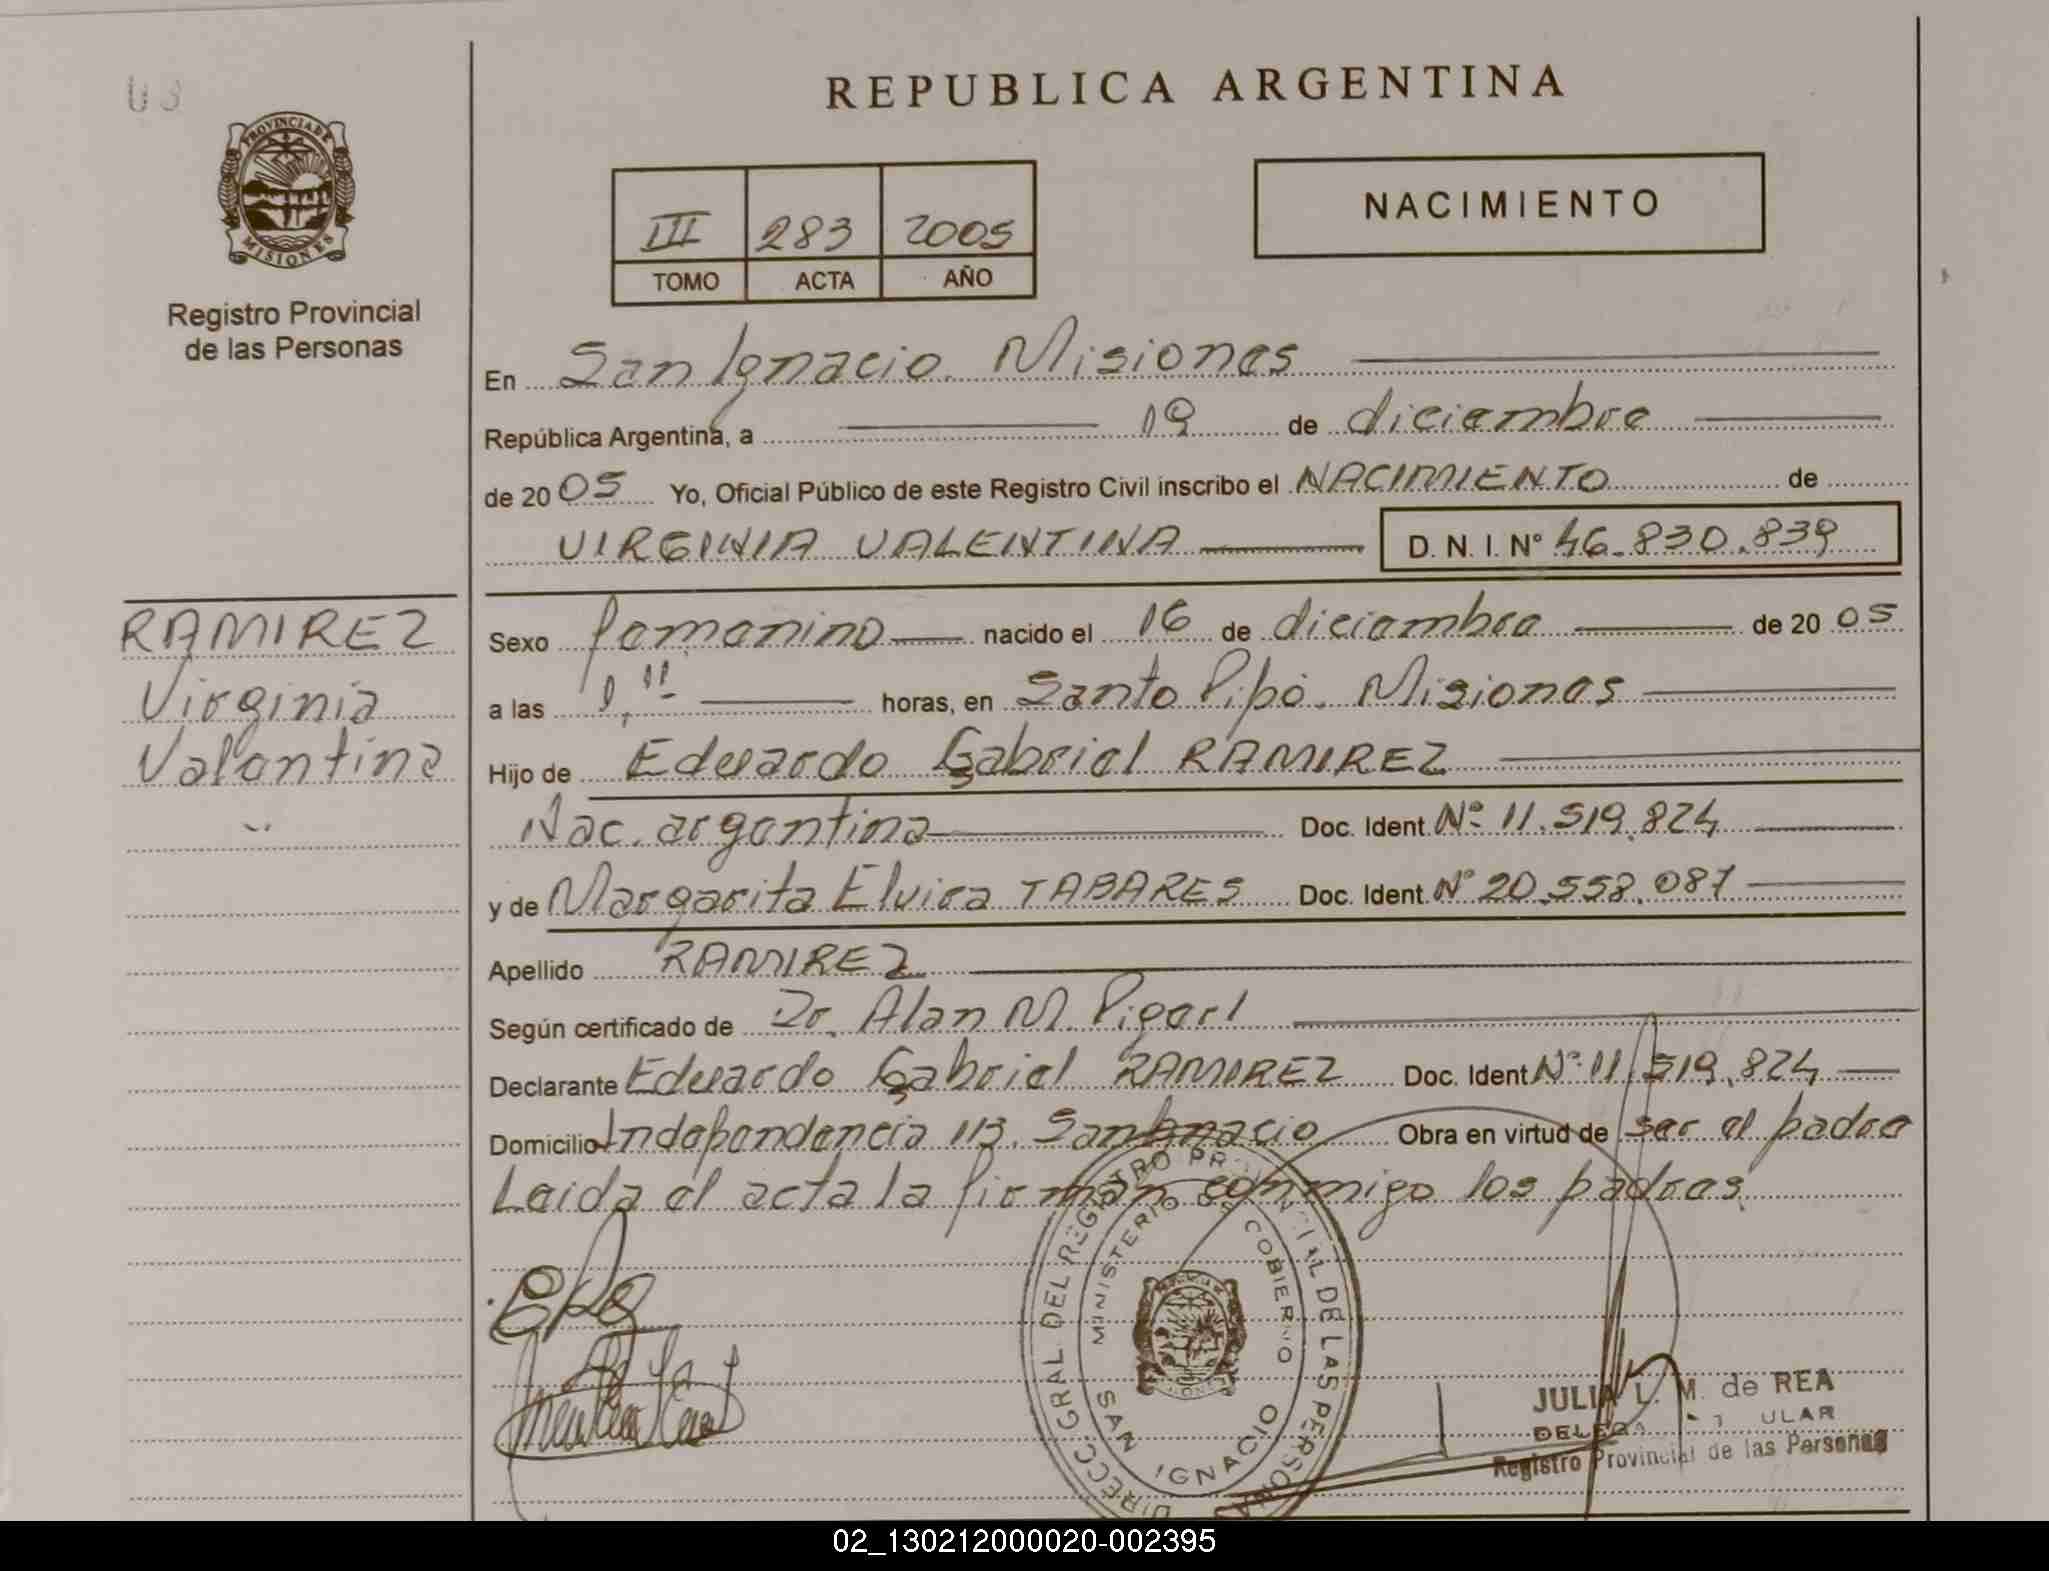 REPUBLICA ARGENTINA
PROVINCIA DE
MISIONES
Registro Provincial
de las Personas
III 283 2005
TOMO ACTA AÑO
NACIMIENTO
En San Ignacio. Misiones
República Argentina, a 19 de diciembre
de 20 05 Yo, Oficial Público de este Registro Civil inscribo el NACIMIENTO de
VIRGINIA VALENTINA D. N. I. N° 46.830.839
RAMIREZ
Virginia
Valentina
Sexo femenino nacido el 16 de diciembre de 20 05
a las horas, en Santo Pipó. Misiones
Hijo de Eduardo Gabriel RAMIREZ
Nac. argentina Doc. Ident. Nº 11.519.824
y de Margarita Elvira TABARES Doc. Ident. Nº 20.558.087
Apellido RAMIREZ
Según certificado de Dr. Alan M.
Declarante Eduardo Gabriel RAMIREZ Doc. Ident. Nº 11.519.824
Domicilio Independencia 113. San Ignacio Obra en virtud de ser el padre
Leida el acta la firman conmigo los padres.
DIRECC. GRAL DEL REGISTRO PROVINCIAL DE LAS PERSONAS
MINISTERIO DE GOBIERNO
SAN IGNACIO
JULIA L. M. de REA
Registro Provincial de las Personas
02_130212000020-002395